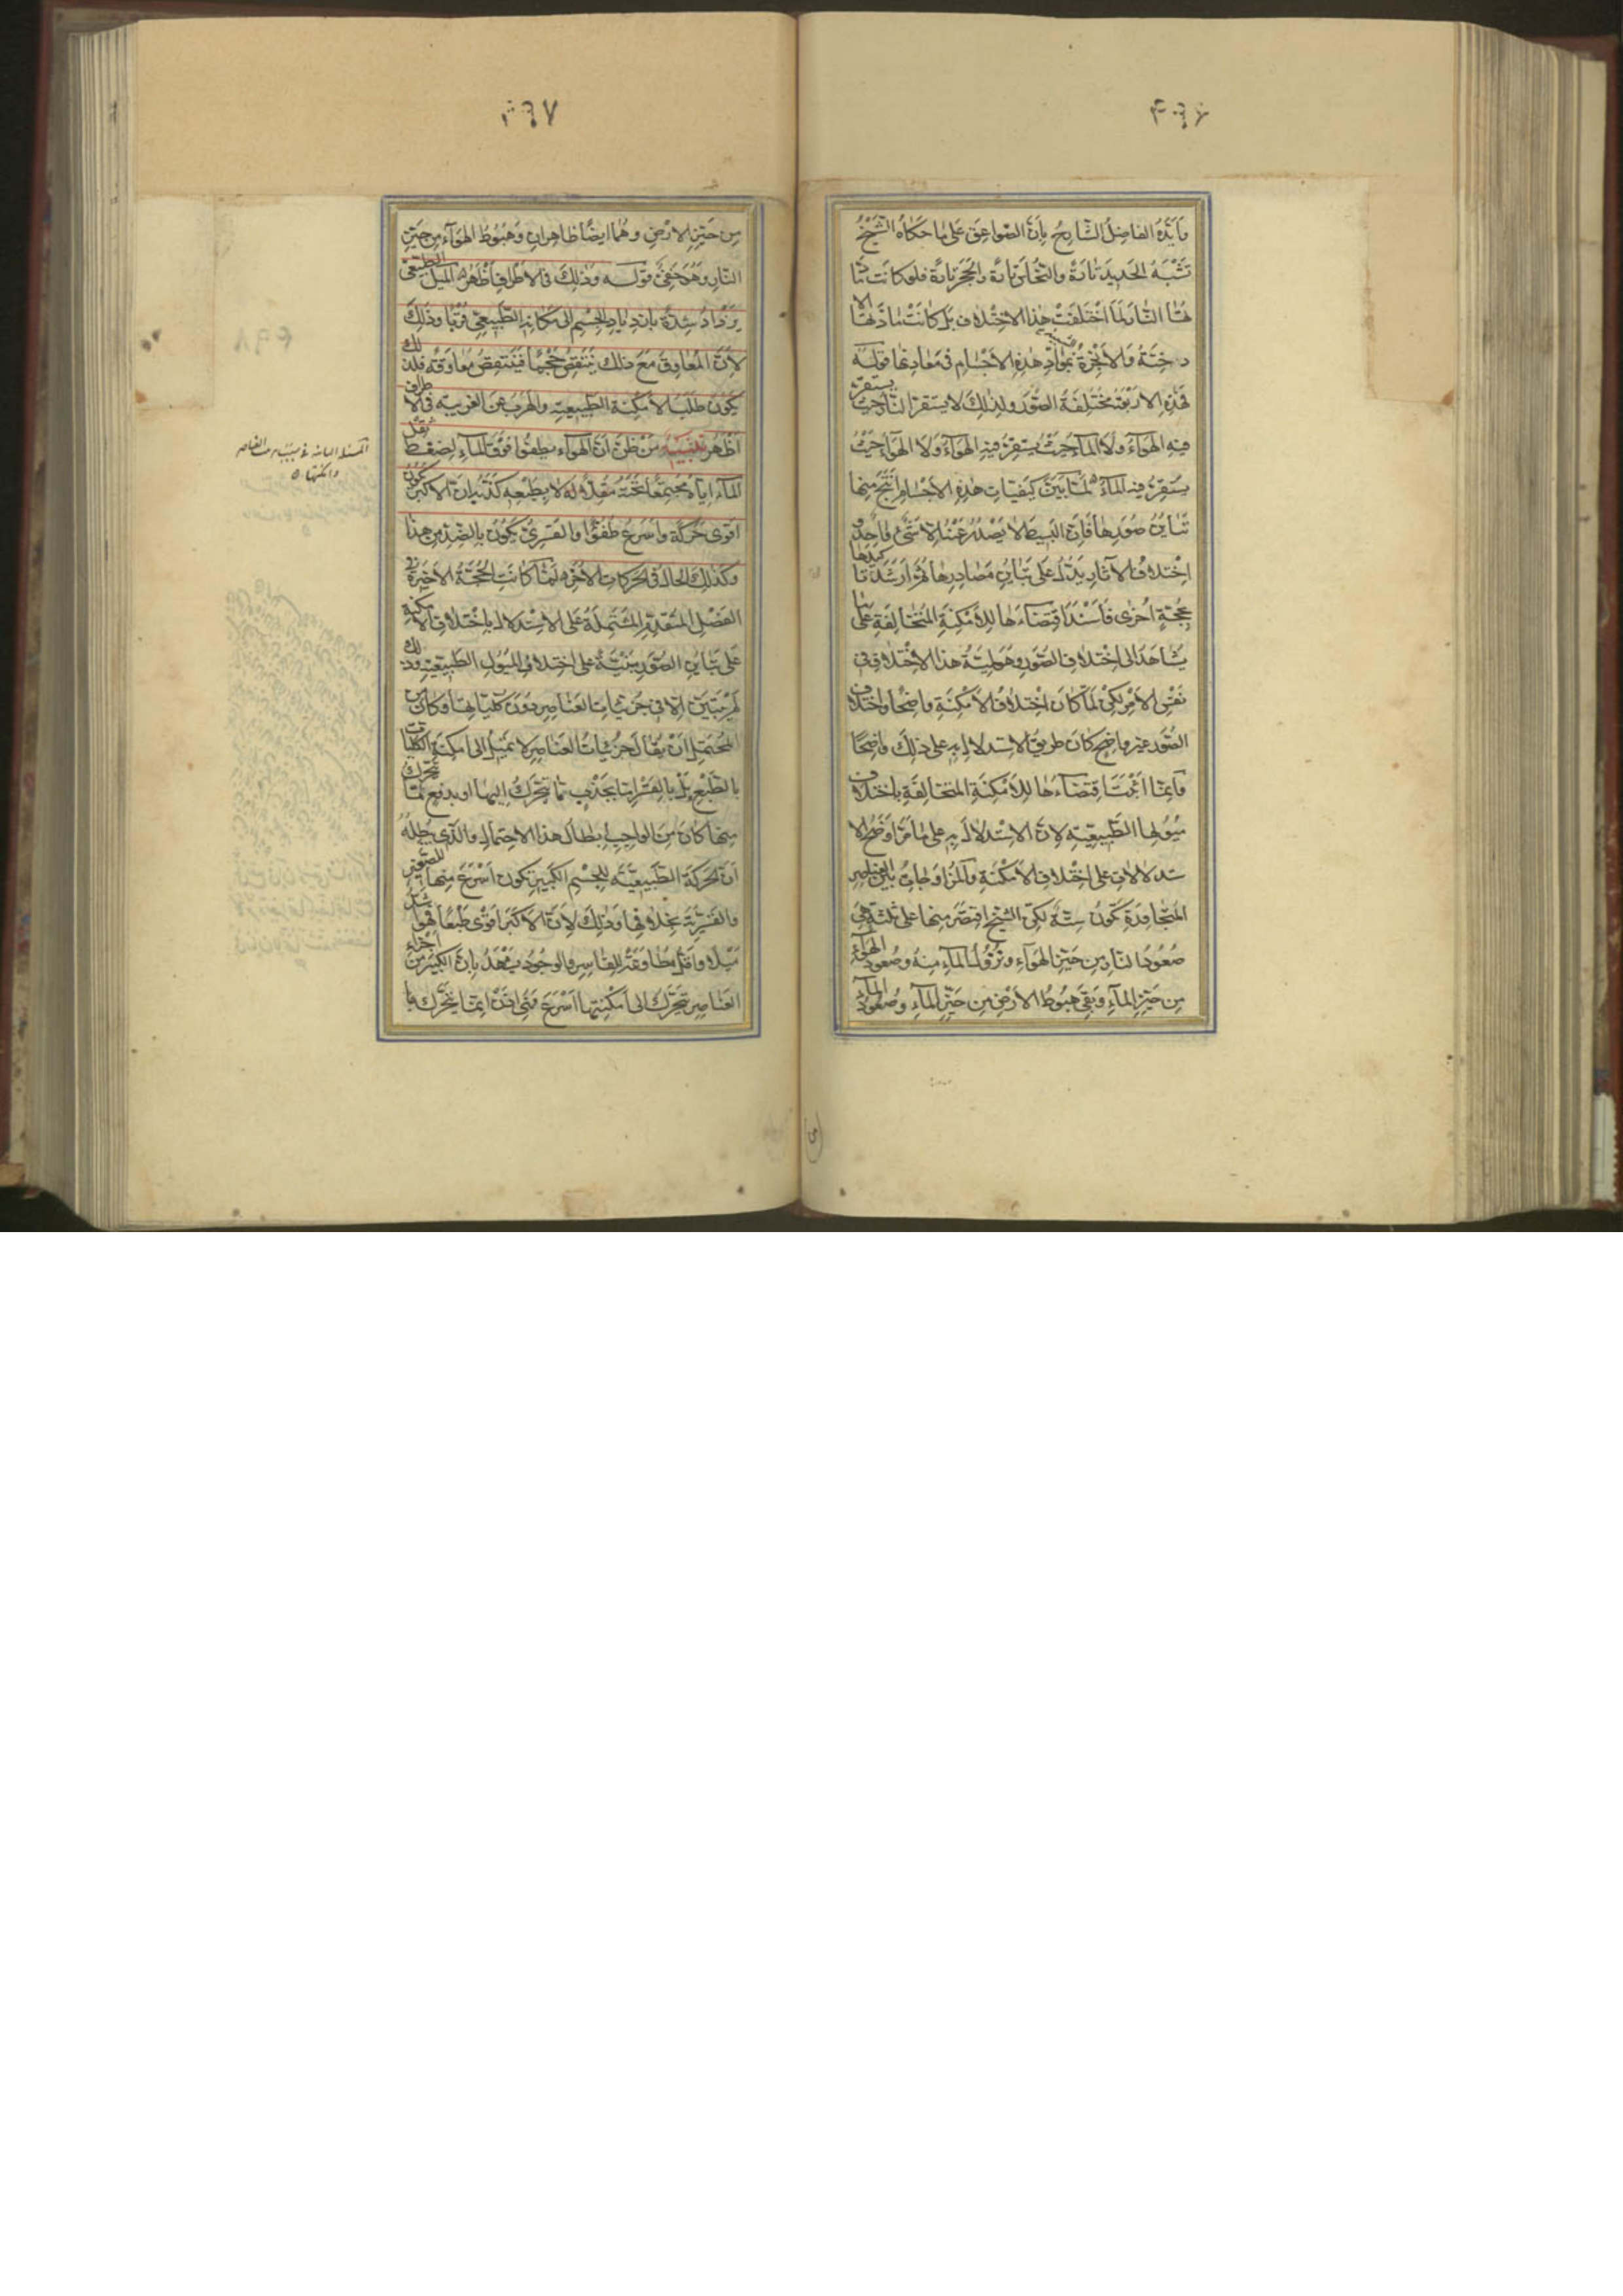 وأيّده الفاضل الشارح بأنّ الصواعق على ما حكاه الشيخ
تشبه الحديد تارة والنحاس تارة والحجر تارة فلو كانت مادّ
تها النار لما اختلفت هذا الاختلاف بل كانت مادتها الا
دخنة والأبخرة بمواد هذه الأجسام في معادنها قوله
فهذه الأربعة مختلفة الصور ولذلك لا يستقر النار حيث يستقر
فيه الهواء ولا الماء حيث يستقر فيه الهواء ولا الهواء حيث
يستقر فيه الماء لما بيّن كيفيات هذه الأجسام أنتج منها
تباين صورها فإن البسيط لا يصدر عنه إلا شيء واحد و
اختلاف الآثار يدل على تباين مصادرها ثم أرشد تأكيدها
بحجة أخرى فأسند اقتضاءها للأمكنة المتخالفة على ما
يشاهد إلى اختلاف الصور وهو لمية هذا الاختلاف في
نفس الأمر لكن لما كان اختلاف الأمكنة واضحا واختلاف
الصور غير واضح كان طريق الاستدلال به على ذلك واضحا
وإنما أثبت اقتضاءها للأمكنة المتخالفة باختلاف
ميولها الطبيعية لأن الاستدلال به على ما مرّ أوضح الا
ستدلالات على اختلاف الأمكنة والمزاوجات بالعناصر
المتجاورة تكون ستة لكن الشيخ اقتصر منها على ثلثة هي
صعود النار من حيّز الهواء ونزول الماء منه وصعود الهواء
من حيّز الماء وبقي هبوط الأرض من حيّز الماء وصعود الماء
من حيّز الأرض وهما أيضا ظاهران وهبوط الهواء من حيّز
النار وهو خفي قوله وذلك في الأطراف أظهر الميل الطبيعي
يزداد شدة بازدياد الجسم إلى مكانه الطبيعي قربا وذلك
لأن المعاوق مع ذلك ينتقص حجما فينتقص معاوقته فلذلك
يكون طلب الأمكنة الطبيعية والهرب عن الغريبة في الأطراف
أظهر تنبيه من ظن أن الهواء يطفو فوق الماء لضغط ثقل
الماء إياه مجتمعا تحته مقلا له لا بطبعه كذبه أن الأكبر يكون
أقوى حركة وأسرع طفوا والقسري يكون بالضد من هذا
وكذلك الحال في الحركات الأخر لما كانت الحجة الأخيرة في
الفصل المتقدم المشتملة على الاستدلال باختلاف الأمكنة
على تباين الصور مبنية على اختلاف الميول الطبيعية وذلك
لم يتبين إلا في جزئيات العناصر دون كلياتها وكان من
المحتمل أن يقال جزئيات العناصر لا تميل إلى أمكنة الكليات
بالطبع بل بالقسر إما بجذب ما يتحرك إليها أو بدفع لما يتحرك
منها كان من الواجب إبطال هذا الاحتمال والذي يبطله
أن الحركة الطبيعية للجسم الكبير تكون أسرع منها للصغير
والقسرية بخلافها وذلك لأن الأكبر أقوى طبعا فهو أشد
ميلا وأقل مطاوقة للقاسر والوجود يشهد بأن الكبير من أجزاء
العناصر تتحرك إلى أمكنتها أسرع فهي إذن إنما يتحرك با